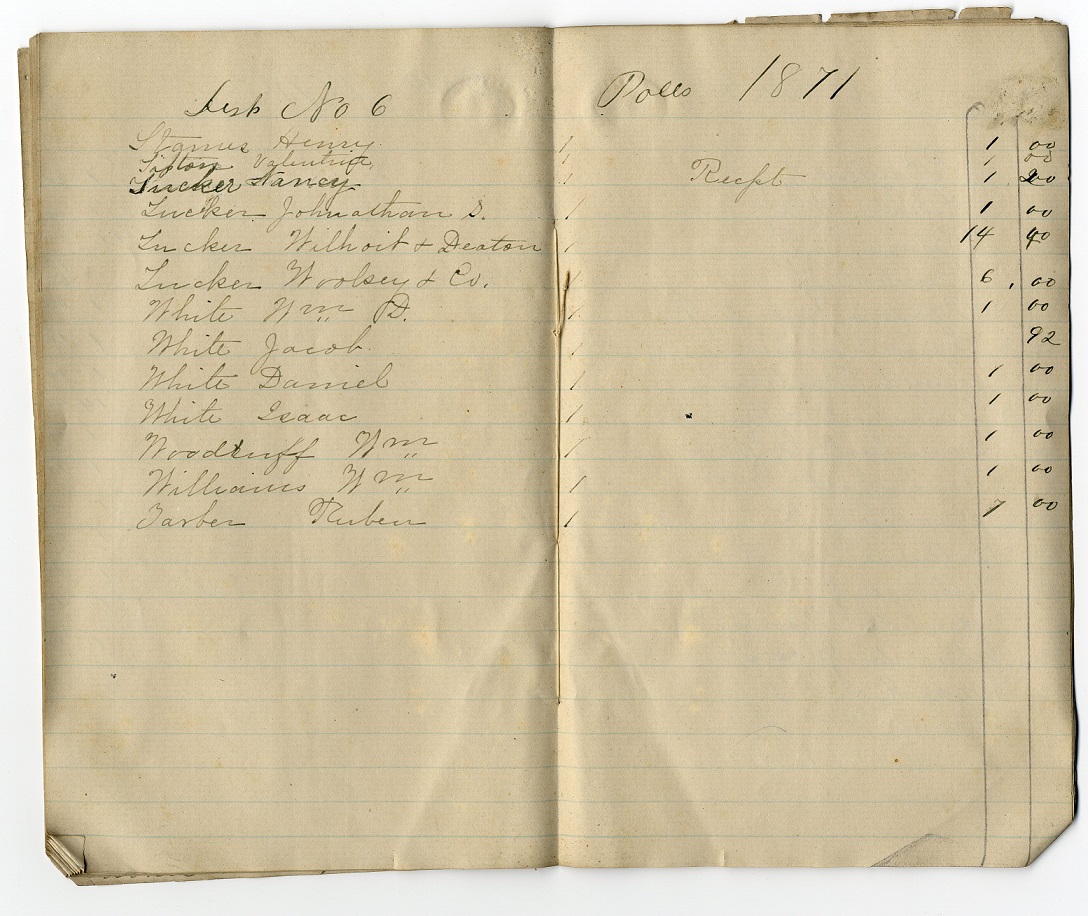 List No 6 Polls 1871
Starnes Henry / 1 00
Tipton Valentine / 1 00
Tucker Nancy / Recpt 1 20
Tucker Johnathan S. / 1 00
Tucker Wilhoit & Deaton / 14 40
Tucker Woolsey & Co. / 6.00
White Wm D. / 1 00
White Jacob / 92
White Daniel / 1 00
White Isaac / 1 00
Woodruff Wm / 1 00
Williams Wm / 1 00
Tarber Ruben / 7 00